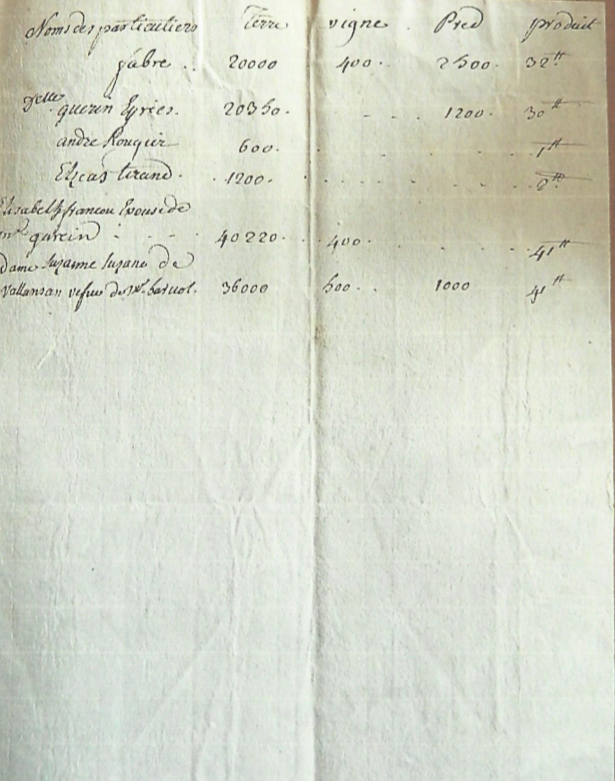 Noms des particuliers Terre vigne . Pred produit
fabre . . 20000 400 . 2500 . 32 tt
Delle guerin Eyries . 20350 . . . 1200 . 30 tt
andre Rouguier 600 . . . . . . 1 tt
Elzeas tirand . . 1200 . . . . . . . 2 tt
Elisabeth francou Epouse de
mr gurein : . . 40220 . 400 . . . . . 41 tt
Dame Suzanne de
Vallansan vefue de Mr. baruol . 36000 500 . . 1000 41 tt